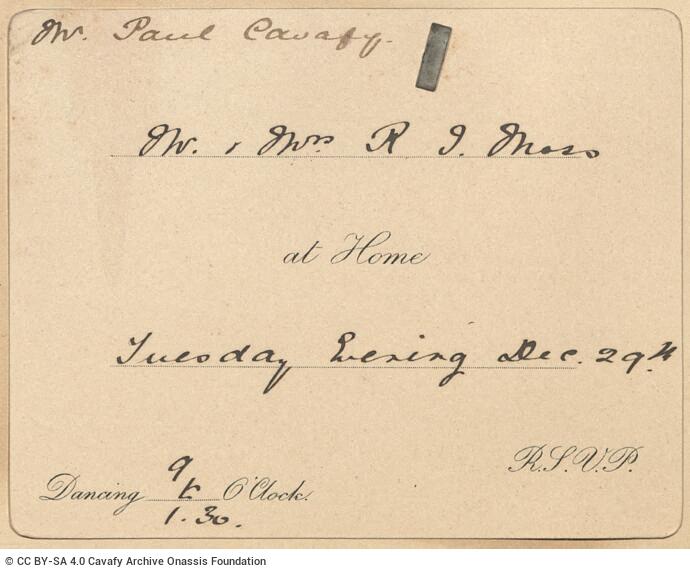 Mr. Paul Cavafy.
Mr. & Mrs R J. Moss
at Home
Tuesday Evening Dec. 29th
R.S.V.P.
9
Dancing to O'Clock.
1.30.
© CC BY-SA 4.0 Cavafy Archive Onassis Foundation